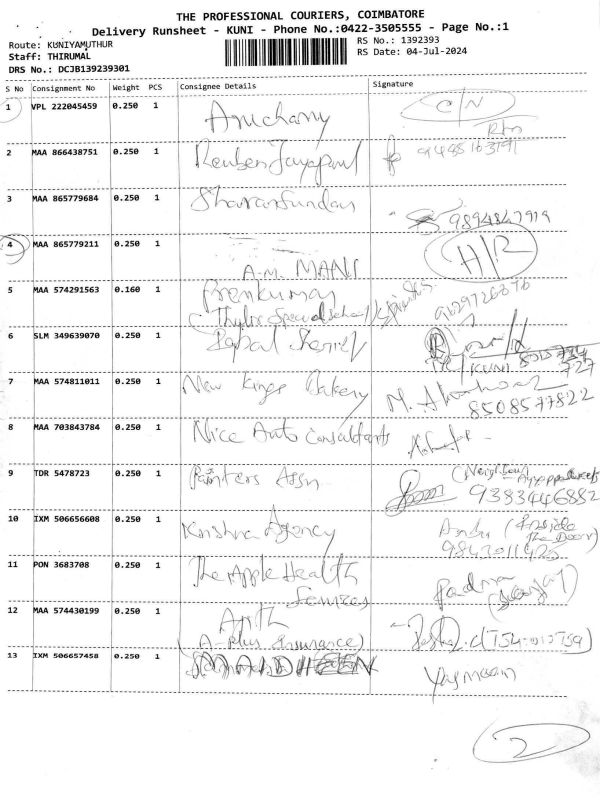 THE PROFESSIONAL COURIERS, COIMBATORE
Delivery Runsheet - KUNI - Phone No.:0422-3505555 - Page No.:1
Route: KUNIYAMUTHUR
Staff: THIRUMAL
DRS No.: DCJB139239301
RS No.: 1392393
RS Date: 04-Jul-2024
S No Consignment No Weight PCS Consignee Details Signature
1 VPL 222045459 0.250 1 C/N
2 MAA 866438751 0.250 1
3 MAA 865779684 0.250 1 Sharansundar 9894847919
4 MAA 865779211 0.250 1 A.M. MANI H/R
5 MAA 574291563 0.160 1 Premkumar
6 SLM 349639070 0.250 1 KUNI 727
7 MAA 574811011 0.250 1 New Kings Bakery M. 8508577822
8 MAA 703843784 0.250 1 Nice Auto Consultants
9 TDR 5478723 0.250 1 Painters Assn (Neighbour 9383446882
10 IXM 506656608 0.250 1 Krishna Agency (Inside the Door)
11 PON 3683708 0.250 1 The Apple Health Services Padma
12 MAA 574430199 0.250 1 (A-Plus Insurance)
13 IXM 506657458 0.250 1 Yasmeen
2